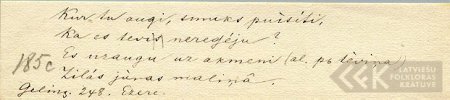 Kur tu augi, smuks puisīti,
Ka es tevis neredzēju?
Es uzaugu uz akmeni (al. pa tēviņa)
185c
Zilās jūras maliņā.
Geliņg. 248. Ezere.
LATVIEŠU
FOLKLORAS
KRĀTUVE